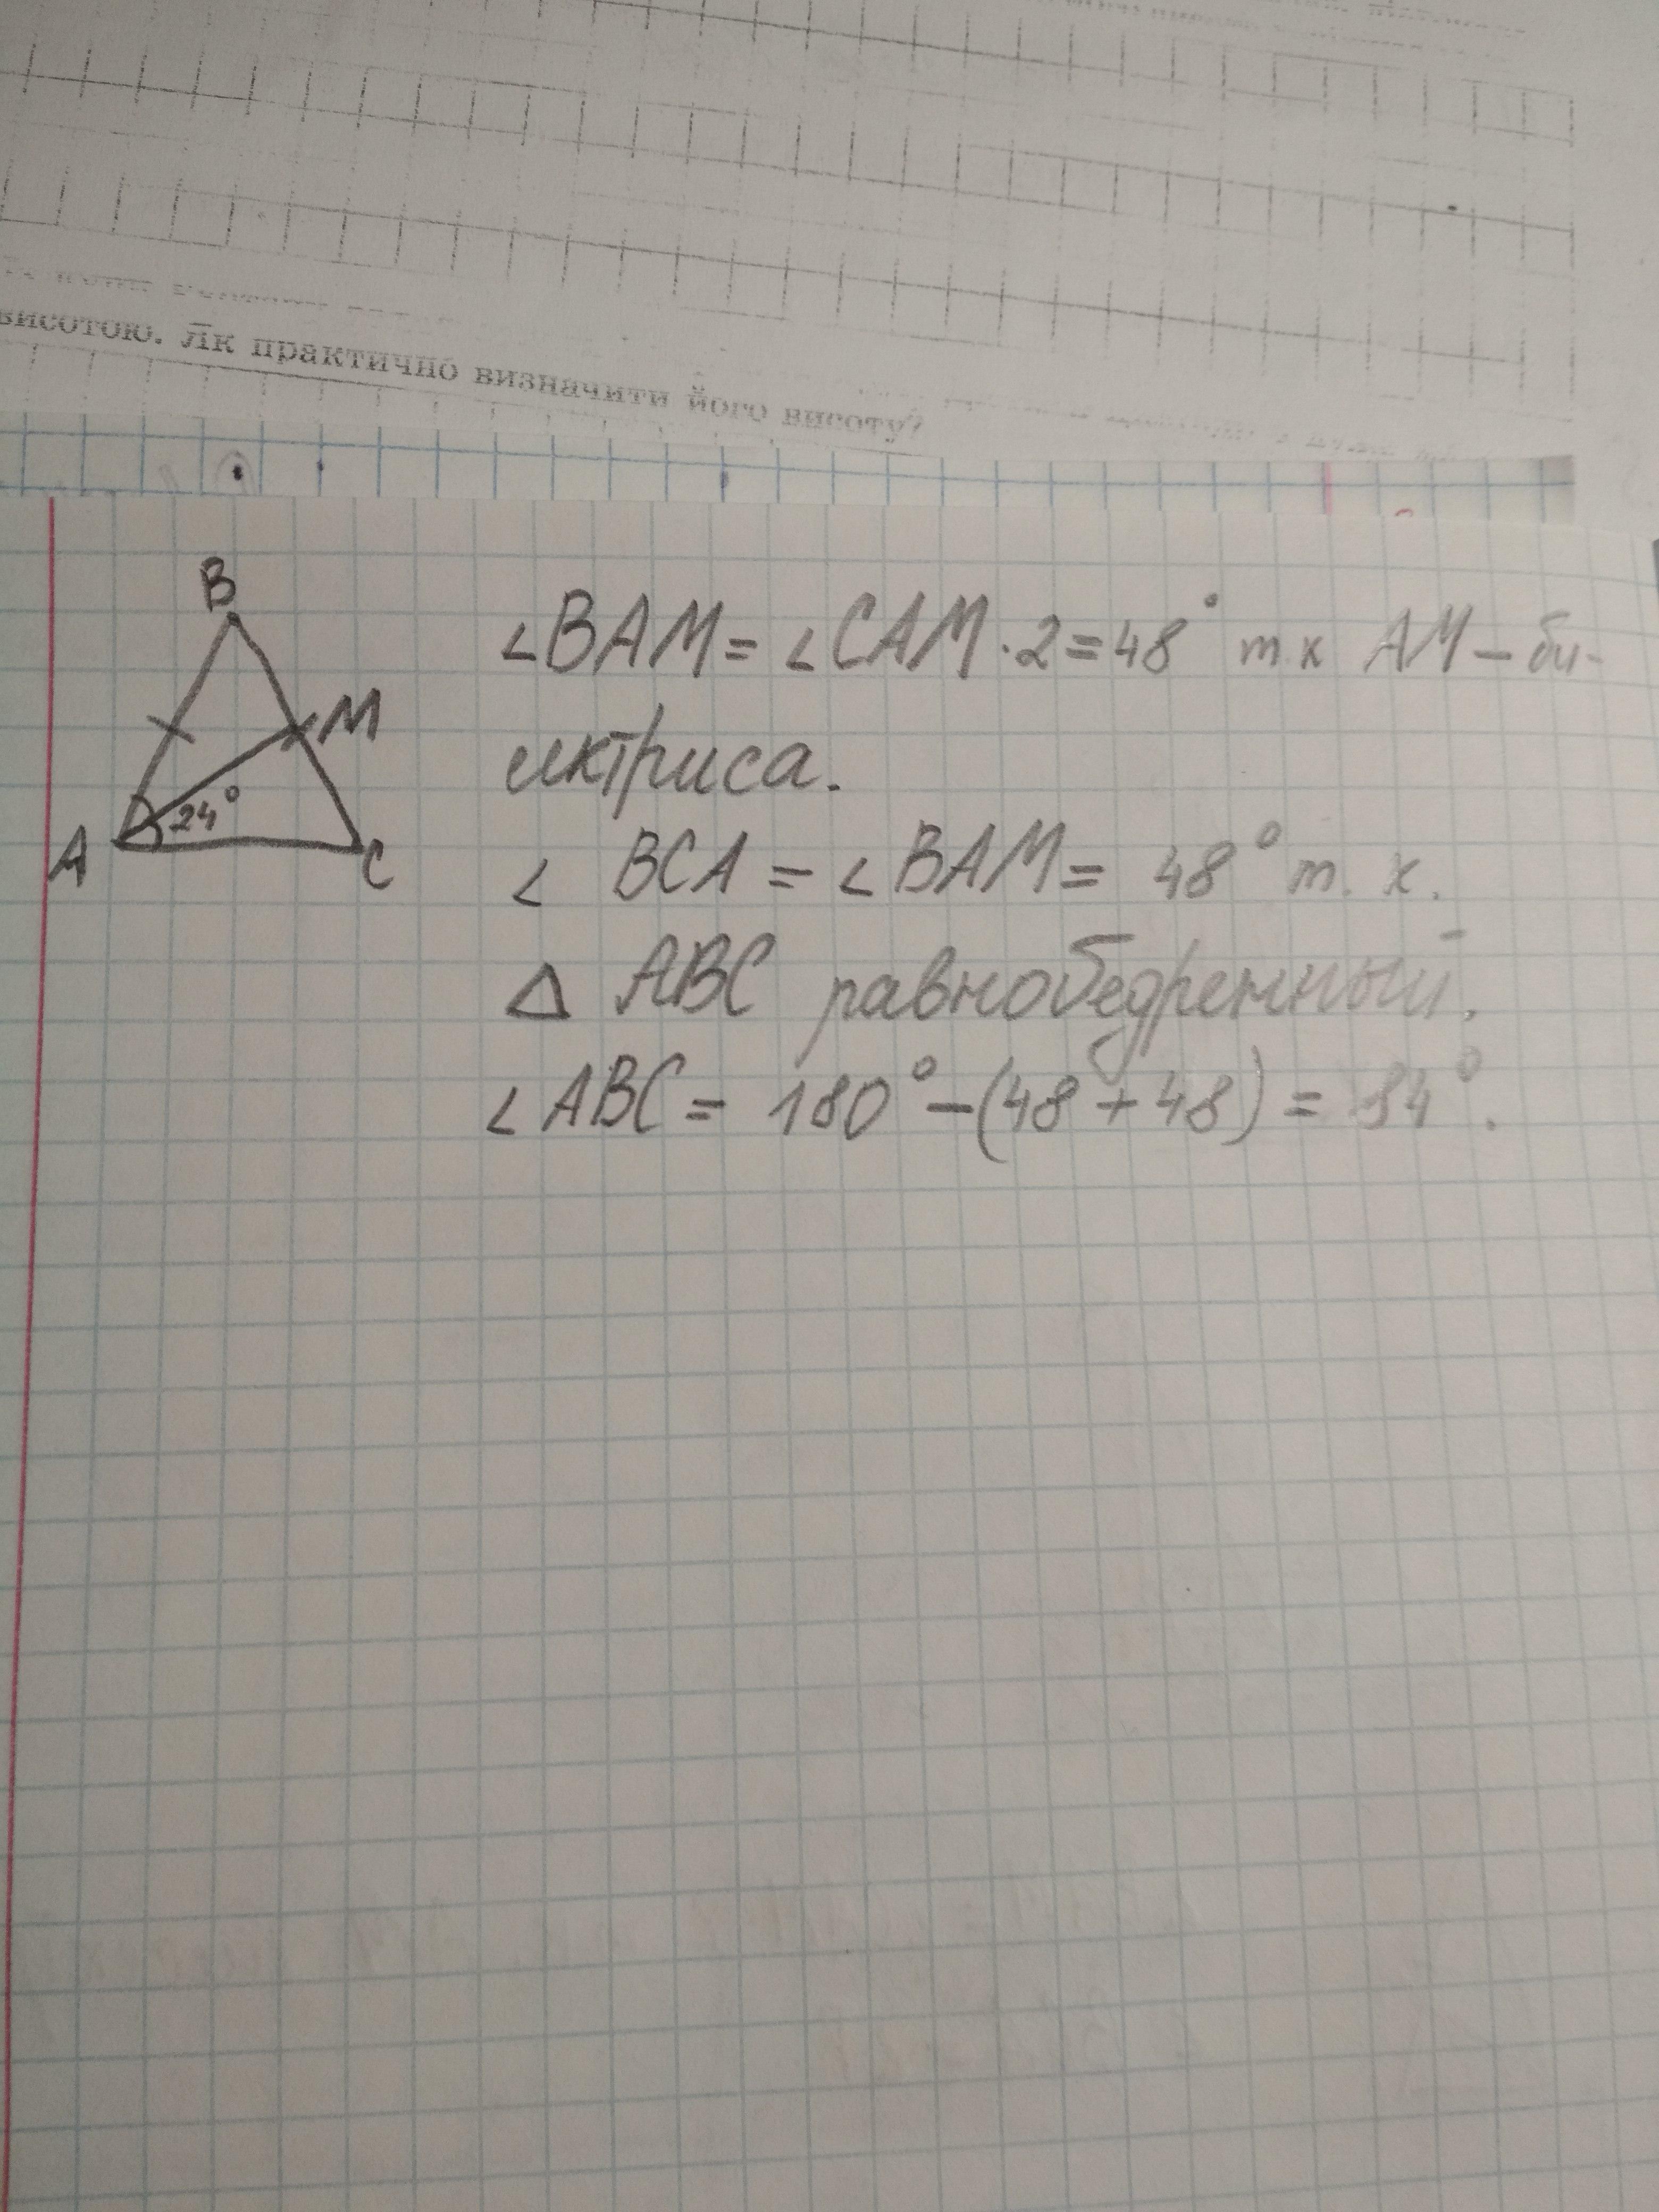 висотою. Як практично визначити його висоту?
B
M
24°
A
C
∠BAM = ∠CAM · 2 = 48° т к AM – би-
иктриса.
∠ BCA = ∠BAM = 48° т. к.
Δ ABC равнобедренный.
∠ABC = 180° – (48 + 48) = 84°.